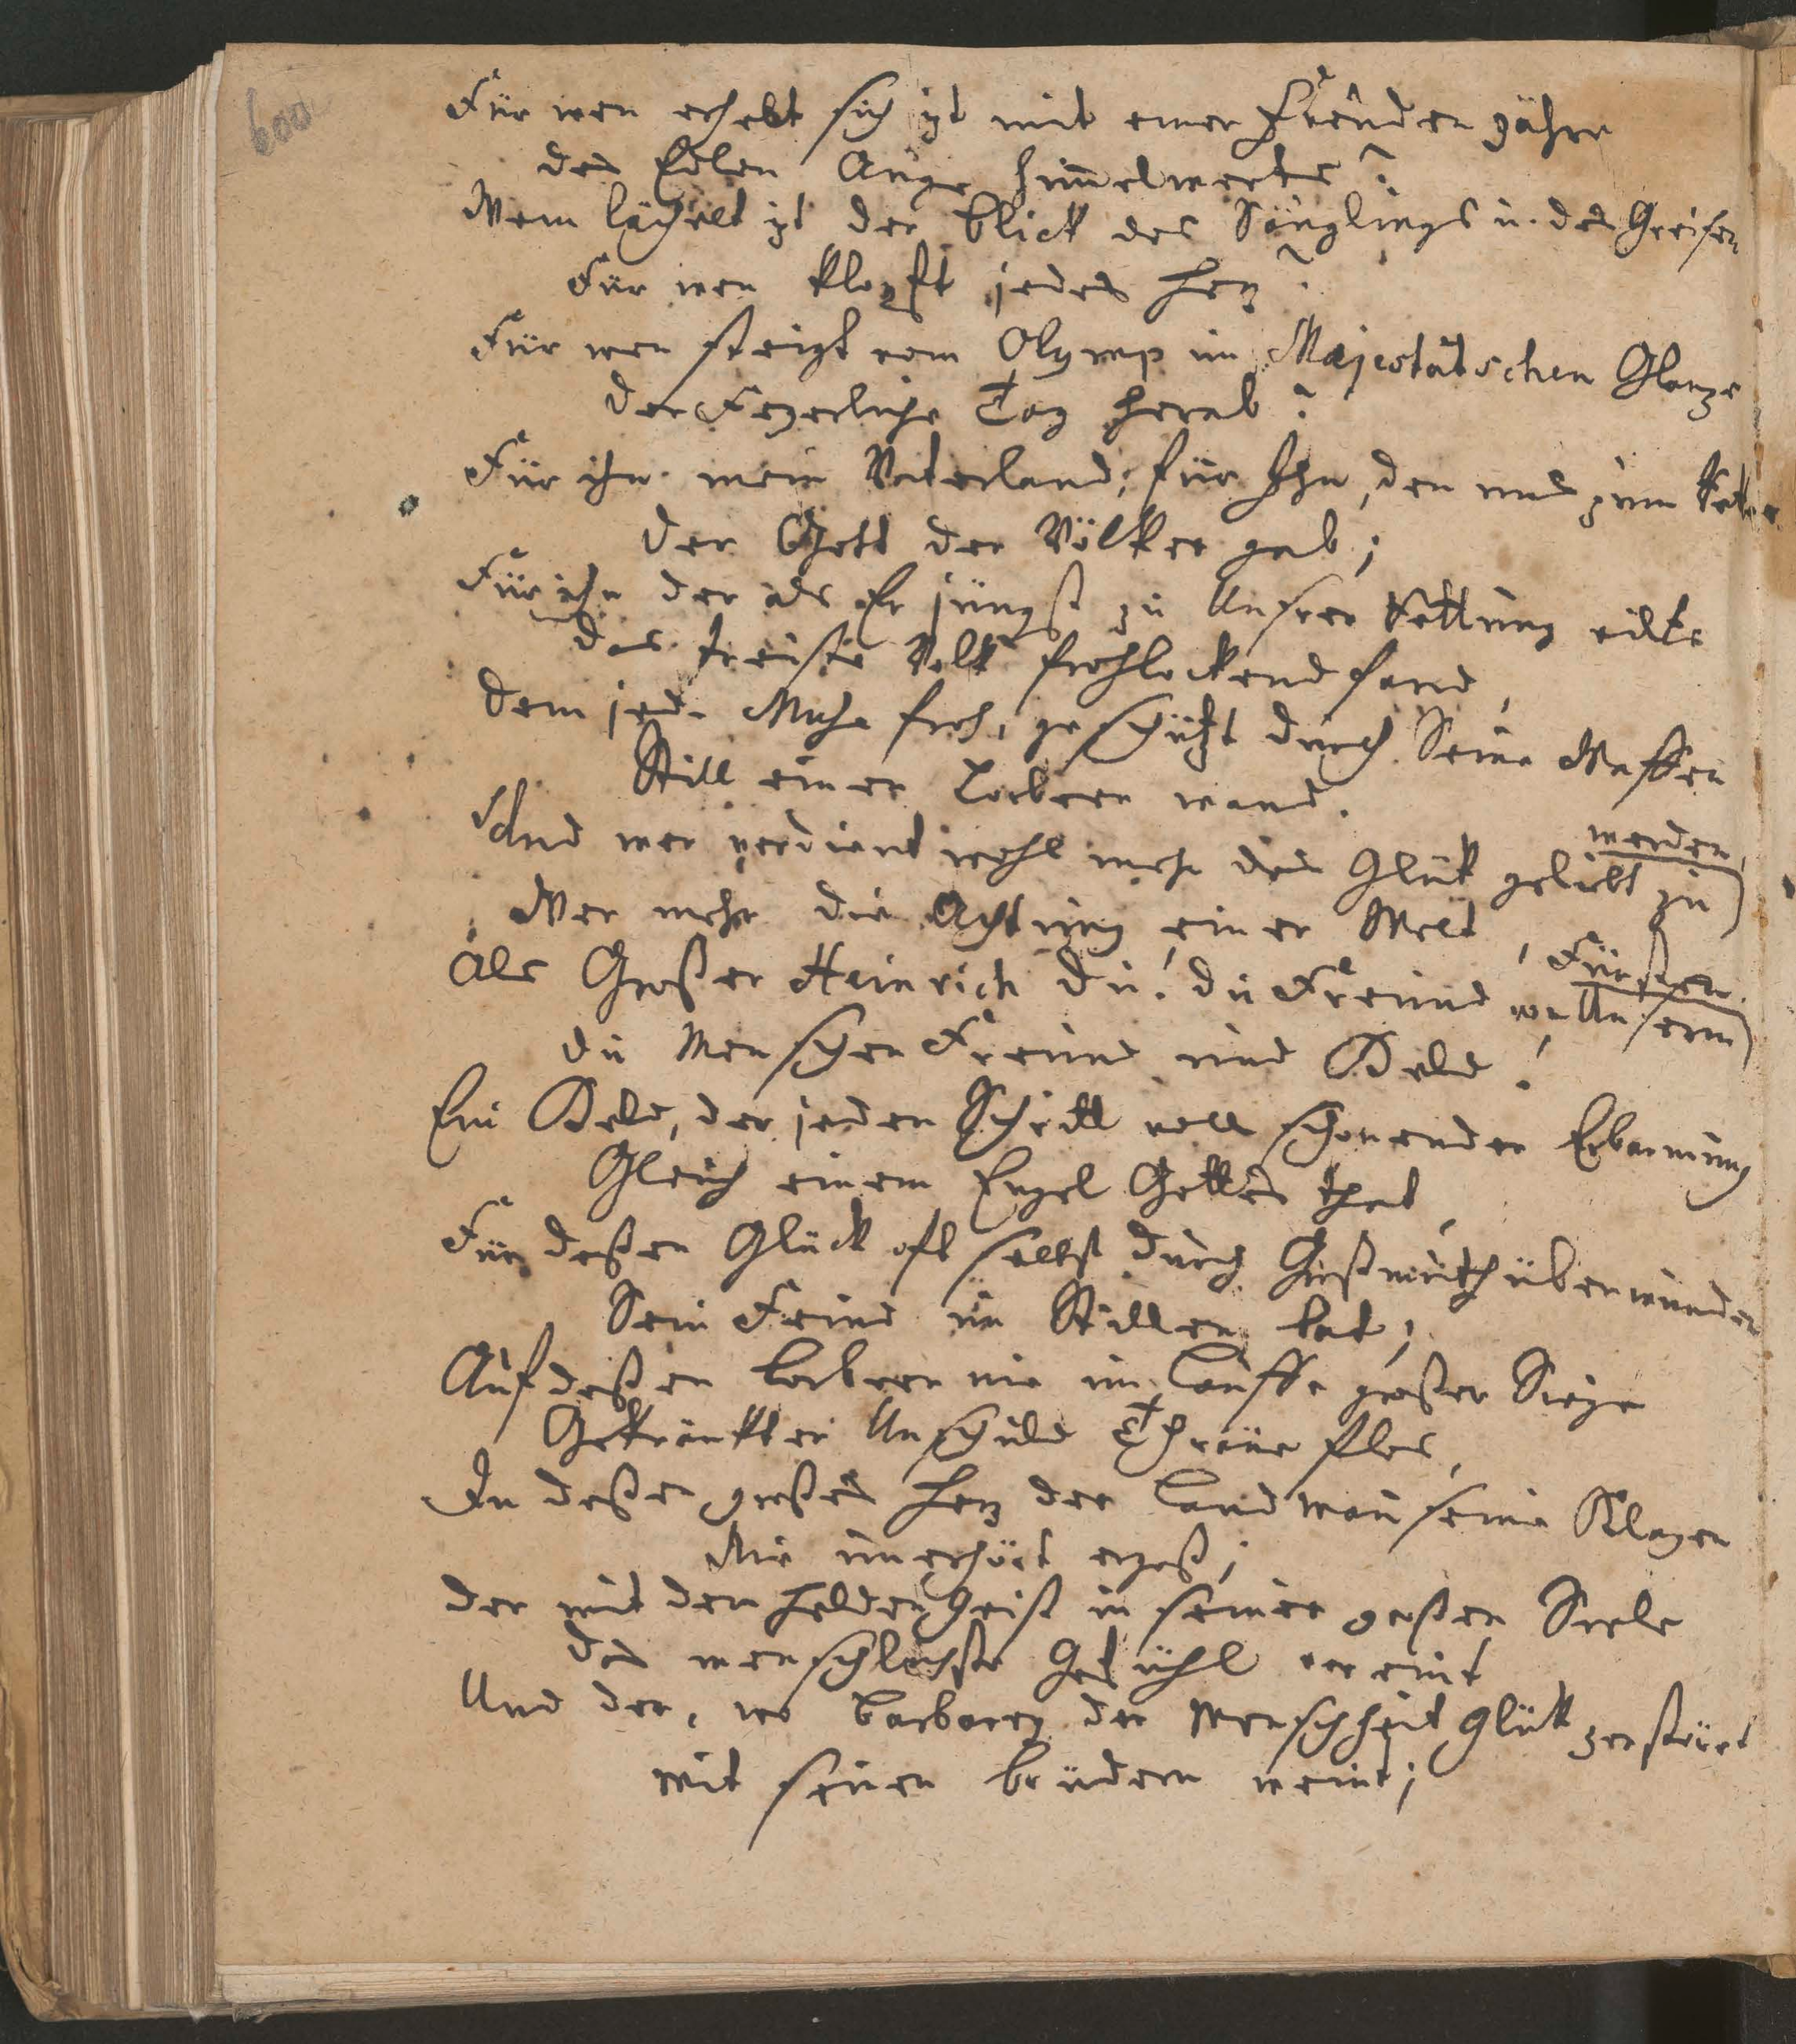 600
Für wen erhebt sich izt mit einer Freuden zähre
des Edlen Auge him̅elwerts?
Wem lächelt izt der blick des Säuglings u. des Greisen
Für wen klopft jedes Herz?
Für wen steigt vom Olymp im Majestätschen Glanze
der Feyerliche Tag herab?
Für ihn mein Vaterland; für Ihn, den uns zum Retter
der Gott der Völker gab;
Für ihn der als Er jüngst zu Unsrer Rettung eilte
das treüste Volk frohlockend fand,
dem jede Muse froh, geschüzt durch Seine Waffen
Still einen Lorbeer wand.
Und wer verdient wohl mehr das Glük geliebt zu
werden,
Wer mehr die Achtung einer Welt,
Als Großer Heinrich du! du Freund von Unserm
Fürsten.
du Menschen Freund und Held!
Ein Held, der jeden Schritt voll schonender Erbarmung
Gleich einem Engel Gottes that,
Für deßen Glück oft selbst durch Großmuth überwunden
Sein Feind im Stillen bat;
Auf deßen Lorbeern nie im Lauffe großer Siege
Gekränkter Unschuld Thräne flos,
In deßen großes Herz der Landman̅ seine Klagen
Nie unerhört ergoß;
der mit dem Helden Geist in seiner großen Seele
das menschlichste Gefühl vereint
Und der, wo barbarey der Menschheit Glük zerstört
mit seinen brüdern weint;